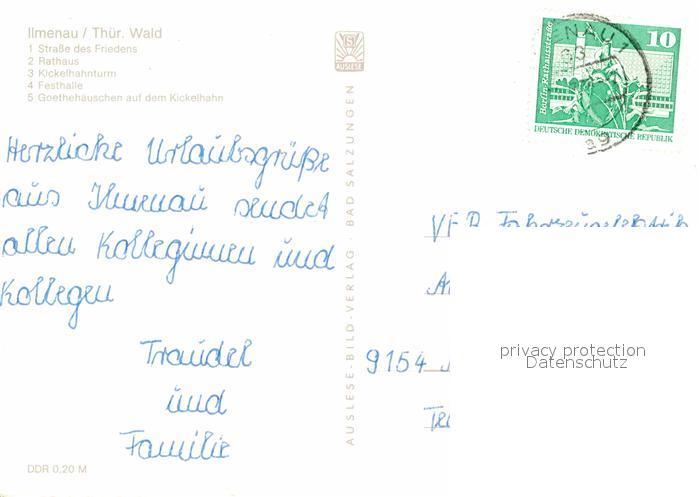 Ilmenau / Thür. Wald
1 Straße des Friedens
2 Rathaus
3 Kickelhahnturm
4 Festhalle
5 Goethehäuschen auf dem Kickelhahn
AUSLESE
Berlin, Rathausstraße
10
DEUTSCHE DEMOKRATISCHE REPUBLIK
ENAU 1
Herzliche Urlaubsgrüße
aus Ilmenau sendet
allen Kolleginnen und
Kollegen
Traudel
und
Familie
AUSLESE-BILD-VERLAG · BAD SALZUNGEN
VEB
9154
privacy protection
Datenschutz
DDR 0,20 M